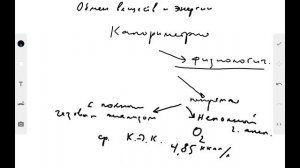 Обмен веществ и энергии
Калориметрия
физиологич.
непрямая
С полным Неполный
газовым анализом г. анал.
O₂
ср. К.Э.К. 4,85 ккал/л